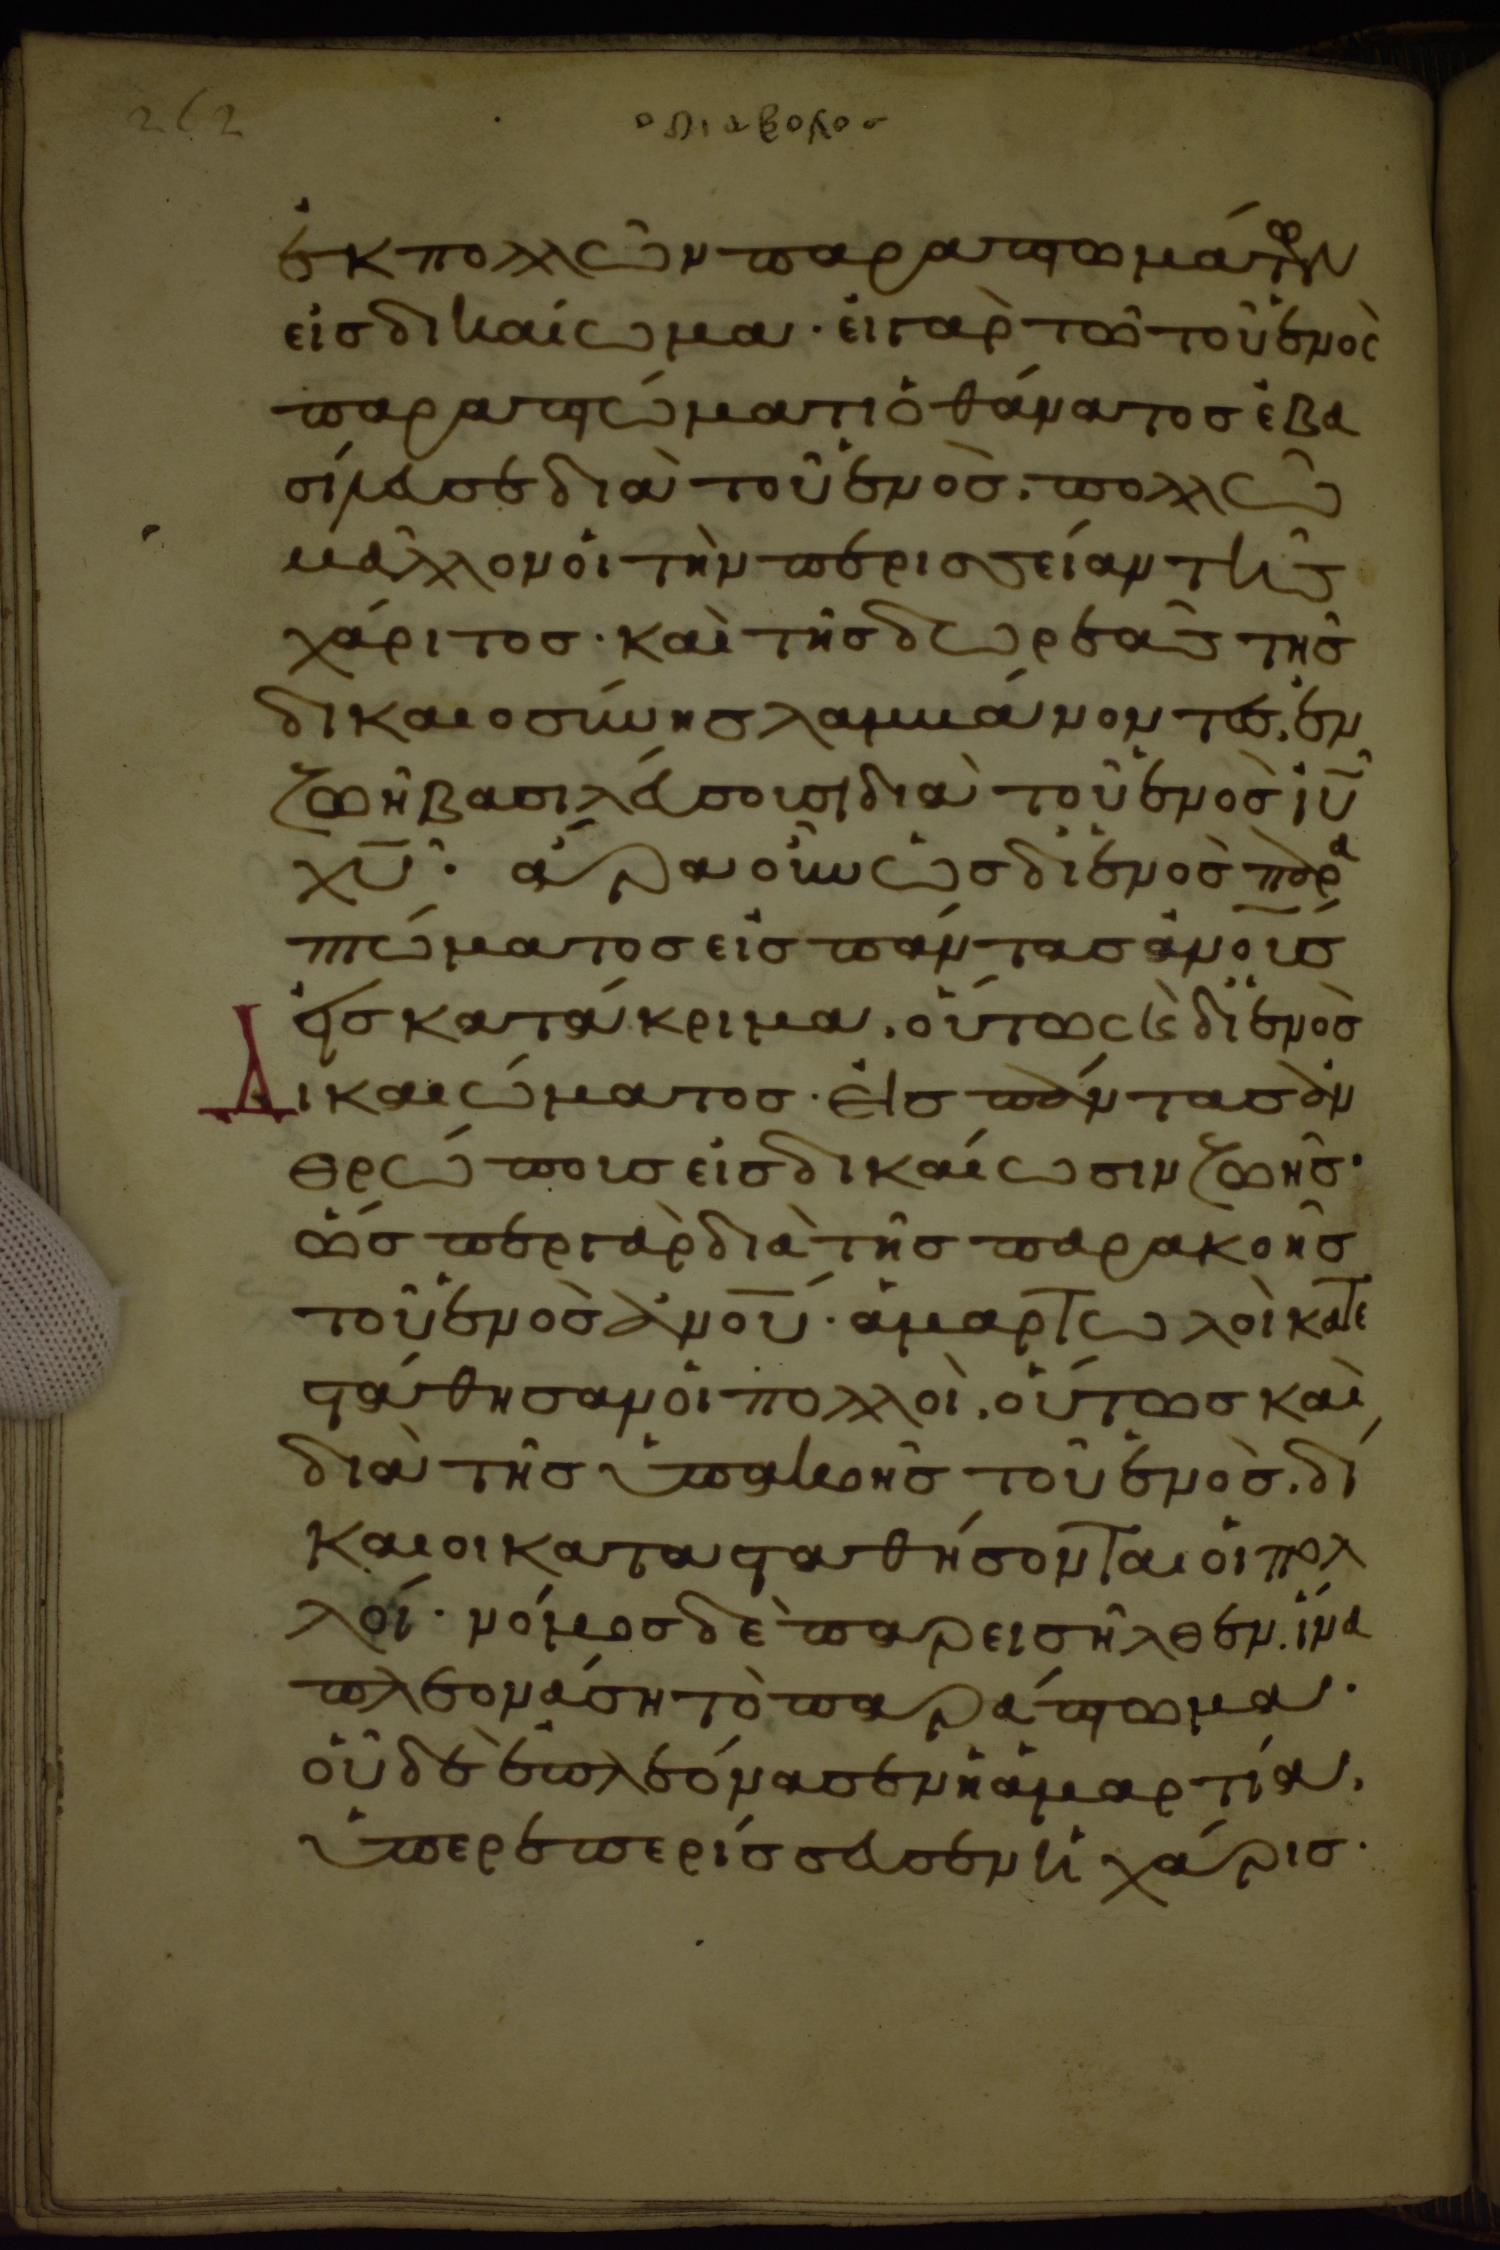 262
ο διαβολος
ἐκ πολλῶν παραπτωμάτων
εἰς δικαίωμα· εἰ γὰρ τῶ τοῦ ἑνὸς
παραπτώματι ὁ θάνατος ἐβα
σίλευσε διὰ τοῦ ἑνὸς. πολλῶ
μᾶλλον οἱ τὴν περισσείαν τῆς
χάριτος· καὶ τῆς δωρεᾶς τῆς
δικαιοσύνης λαμβάνοντες. ἐν
ζωῆ βασιλεύσουσι διὰ τοῦ ἑνὸς ἰῦ
χῦ· ἄρα οὖν ὡς δι ἑνὸς παρα
πτώματος εἰς πάντας ἀνουσ
εἰς κατάκριμα. οὕτως κὲ δι ἑνὸς
Δικαιώματος· εἰς πάντας ἀν
θρώπους εἰς δικαίωσιν ζωῆς·
ὥσπερ γὰρ διὰ τῆς παρακοῆς
τοῦ ἑνὸς ἀνου· ἁμαρτωλοὶ κατε
στάθησαν οἱ πολλοὶ. οὕτως καὶ
διὰ τῆς ὑπακοῆς τοῦ ἑνὸς. δί
καιοι κατασταθήσονται οἱ πολ
λοί· νόμος δὲ παρεισῆλθεν. ἵνα
πλεονάση τὸ παράπτωμα·
οὗ δὲ ἐπλεόνασεν ἡ ἁμαρτία.
ὑπερεπερίσσευσεν ἡ χάρις·